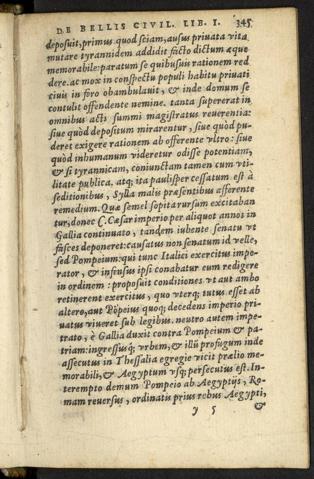 DE BELLIS CIVIL. LIB. I. 345
deposuit, primus quod sciam, ausus priuata vita
mutare tyrannidem addidit facto dictum æque
memorabile: paratum se quibusuis rationem red
dere. ac mox in conspectu populi habitu priuati
ciuis in foro obambulauit, & inde domum se
contulit offendente nemine. tanta supererat in
omnibus acti summi magistratus reuerentia:
siue quòd depositum mirarentur, siue quòd pu-
deret exigere rationem ab offerente vltro: siue
quòd inhumanum videretur odisse potentiam,
& si tyrannicam, coniunctam tamen cum vti-
litate publica. atq; ita paulisper cessatum est à
seditionibus, Sylla malis præsentibus afferente
remedium. Quæ semel sopita rursum excitaban
tur, donec C. Cæsar imperio per aliquot annos in
Gallia continuato, tandem iubente senatu vt
fasces deponeret: causatus non senatum id velle,
sed Pompeium: qui tunc Italici exercitus impe-
rator, & infensus ipsi conabatur eum redigere
in ordinem: proposuit conditiones vt aut ambo
retinerent exercitus, quo vterq; tutus esset ab
altero, aut Põpeius quoq; decedens imperio pri-
uatus viueret sub legibus. neutro autem impe-
trato, è Gallia duxit contra Pompeium & pa-
triam: ingressusq́; vrbem, & illũ profugum inde
assecutus in Thessalia egregie vicit prælio me-
morabili, & Aegyptum vsq; persecutus est. In-
terempto demum Pompeio ab Aegyptijs, Ro-
mam reuersus, ordinatis prius rebus Aegypti,
y 5 &